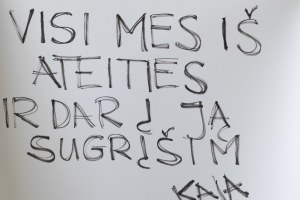 VISI MES IŠ
ATEITIES
IR DAR Į JĄ
SUGRĮŠIM
KAJA